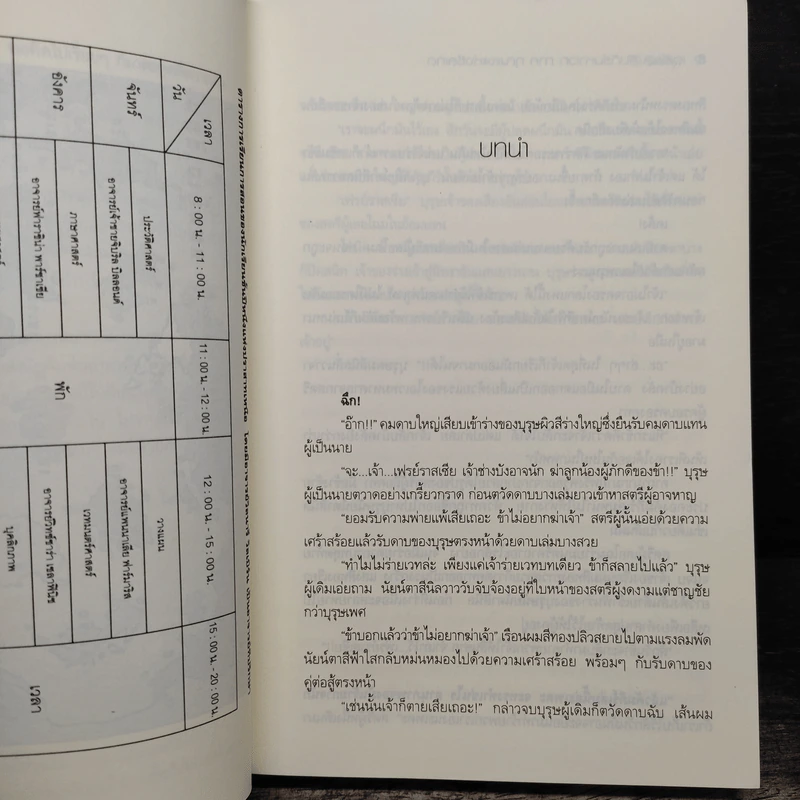 วัน
เวลา
8 : 00 น. - 11 : 00 น.
11 : 00 น. - 12 : 00 น.
12 : 00 น. - 15 : 00 น.
15 : 00 น. - 20 : 00 น.
จันทร์
ประวัติศาสตร์
อาจารย์เจ้าชายจิบริล บิลลอนด์
พัก
วางแผน
อาจารย์แพนนาเลีย ฟาร์มาริล
เวลา
อังคาร
ภาษาศาสตร์
อาจารย์ฟาราซิน่า พาร์ซาเซีย
เวทมนตร์ศาสตร์
อาจารย์วิทช์ซาร่า เซลาฟินิช
บุคลิกภาพ
บทนำ
ฉึก!
“อ๊าก!!” คมดาบใหญ่เสียบเข้าร่างของบุรุษผิวสีร่างใหญ่ซึ่งยืนรับคมดาบแทน
ผู้เป็นนาย
“จะ...เจ้า...เฟรย์ราสเซีย เจ้าช่างบังอาจนัก ฆ่าลูกน้องผู้ภักดีของข้า!!” บุรุษ
ผู้เป็นนายตวาดอย่างเกรี้ยวกราด ก่อนตวัดดาบบางเล่มยาวเข้าหาสตรีผู้อาจหาญ
“ยอมรับความพ่ายแพ้เสียเถอะ ข้าไม่อยากฆ่าเจ้า” สตรีผู้นั้นเอ่ยด้วยความ
เศร้าสร้อยแล้วรับดาบของบุรุษตรงหน้าด้วยดาบเล่มบางสวย
“ทำไมไม่ร่ายเวทล่ะ เพียงแค่เจ้าร่ายเวทบทเดียว ข้าก็สลายไปแล้ว” บุรุษ
ผู้เดิมเอ่ยถาม นัยน์ตาสีนิลวาววับจับจ้องอยู่ที่ใบหน้าของสตรีผู้งดงามแต่ชาญชัย
กว่าบุรุษเพศ
“ข้าบอกแล้วว่าข้าไม่อยากฆ่าเจ้า” เรือนผมสีทองปลิวสยายไปตามแรงลมพัด
นัยน์ตาสีฟ้าใสกลับหม่นหมองไปด้วยความเศร้าสร้อย พร้อมๆ กับรับดาบของ
คู่ต่อสู้ตรงหน้า
“เช่นนั้นเจ้าก็ตายเสียเถอะ!” กล่าวจบบุรุษผู้เดิมก็ตวัดดาบฉับ เส้นผม